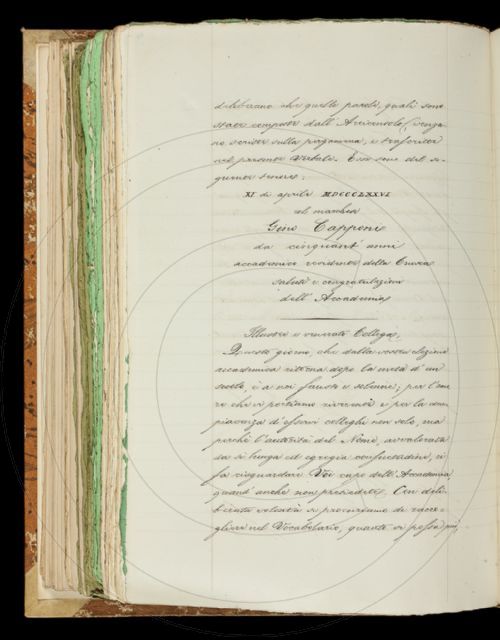 deliberano che quelle parole, quali sono
state composte dall'Arciconsolo, venga-
no scritte sulla pergamena, e trascritte
nel presente Verbale. Esse sono del se-
guente tenore:
XI di aprile MDCCCLXXVI
al marchese
Gino Capponi
da cinquant'anni
accademico residente della Crusca
saluti e congratulazioni
dell'Accademia
Illustre e venerato Collega,
Questo giorno, che dalla vostra elezione
accademica ritorna dopo la metà d'un
secolo, è a noi fausto e solenne; per l'amo-
re che vi portiamo riverenti e per la com-
piacenza d'esservi colleghi non solo, ma
perchè l'autorità del Nome, avvalorata
da sì lunga ed egregia consuetudine, ci
fa risguardare Voi capo dell'Accademia,
quand'anche non presediate. Con deli-
berata volontà ci procuriamo di racco-
gliere nel Vocabolario, quanto si possa più,